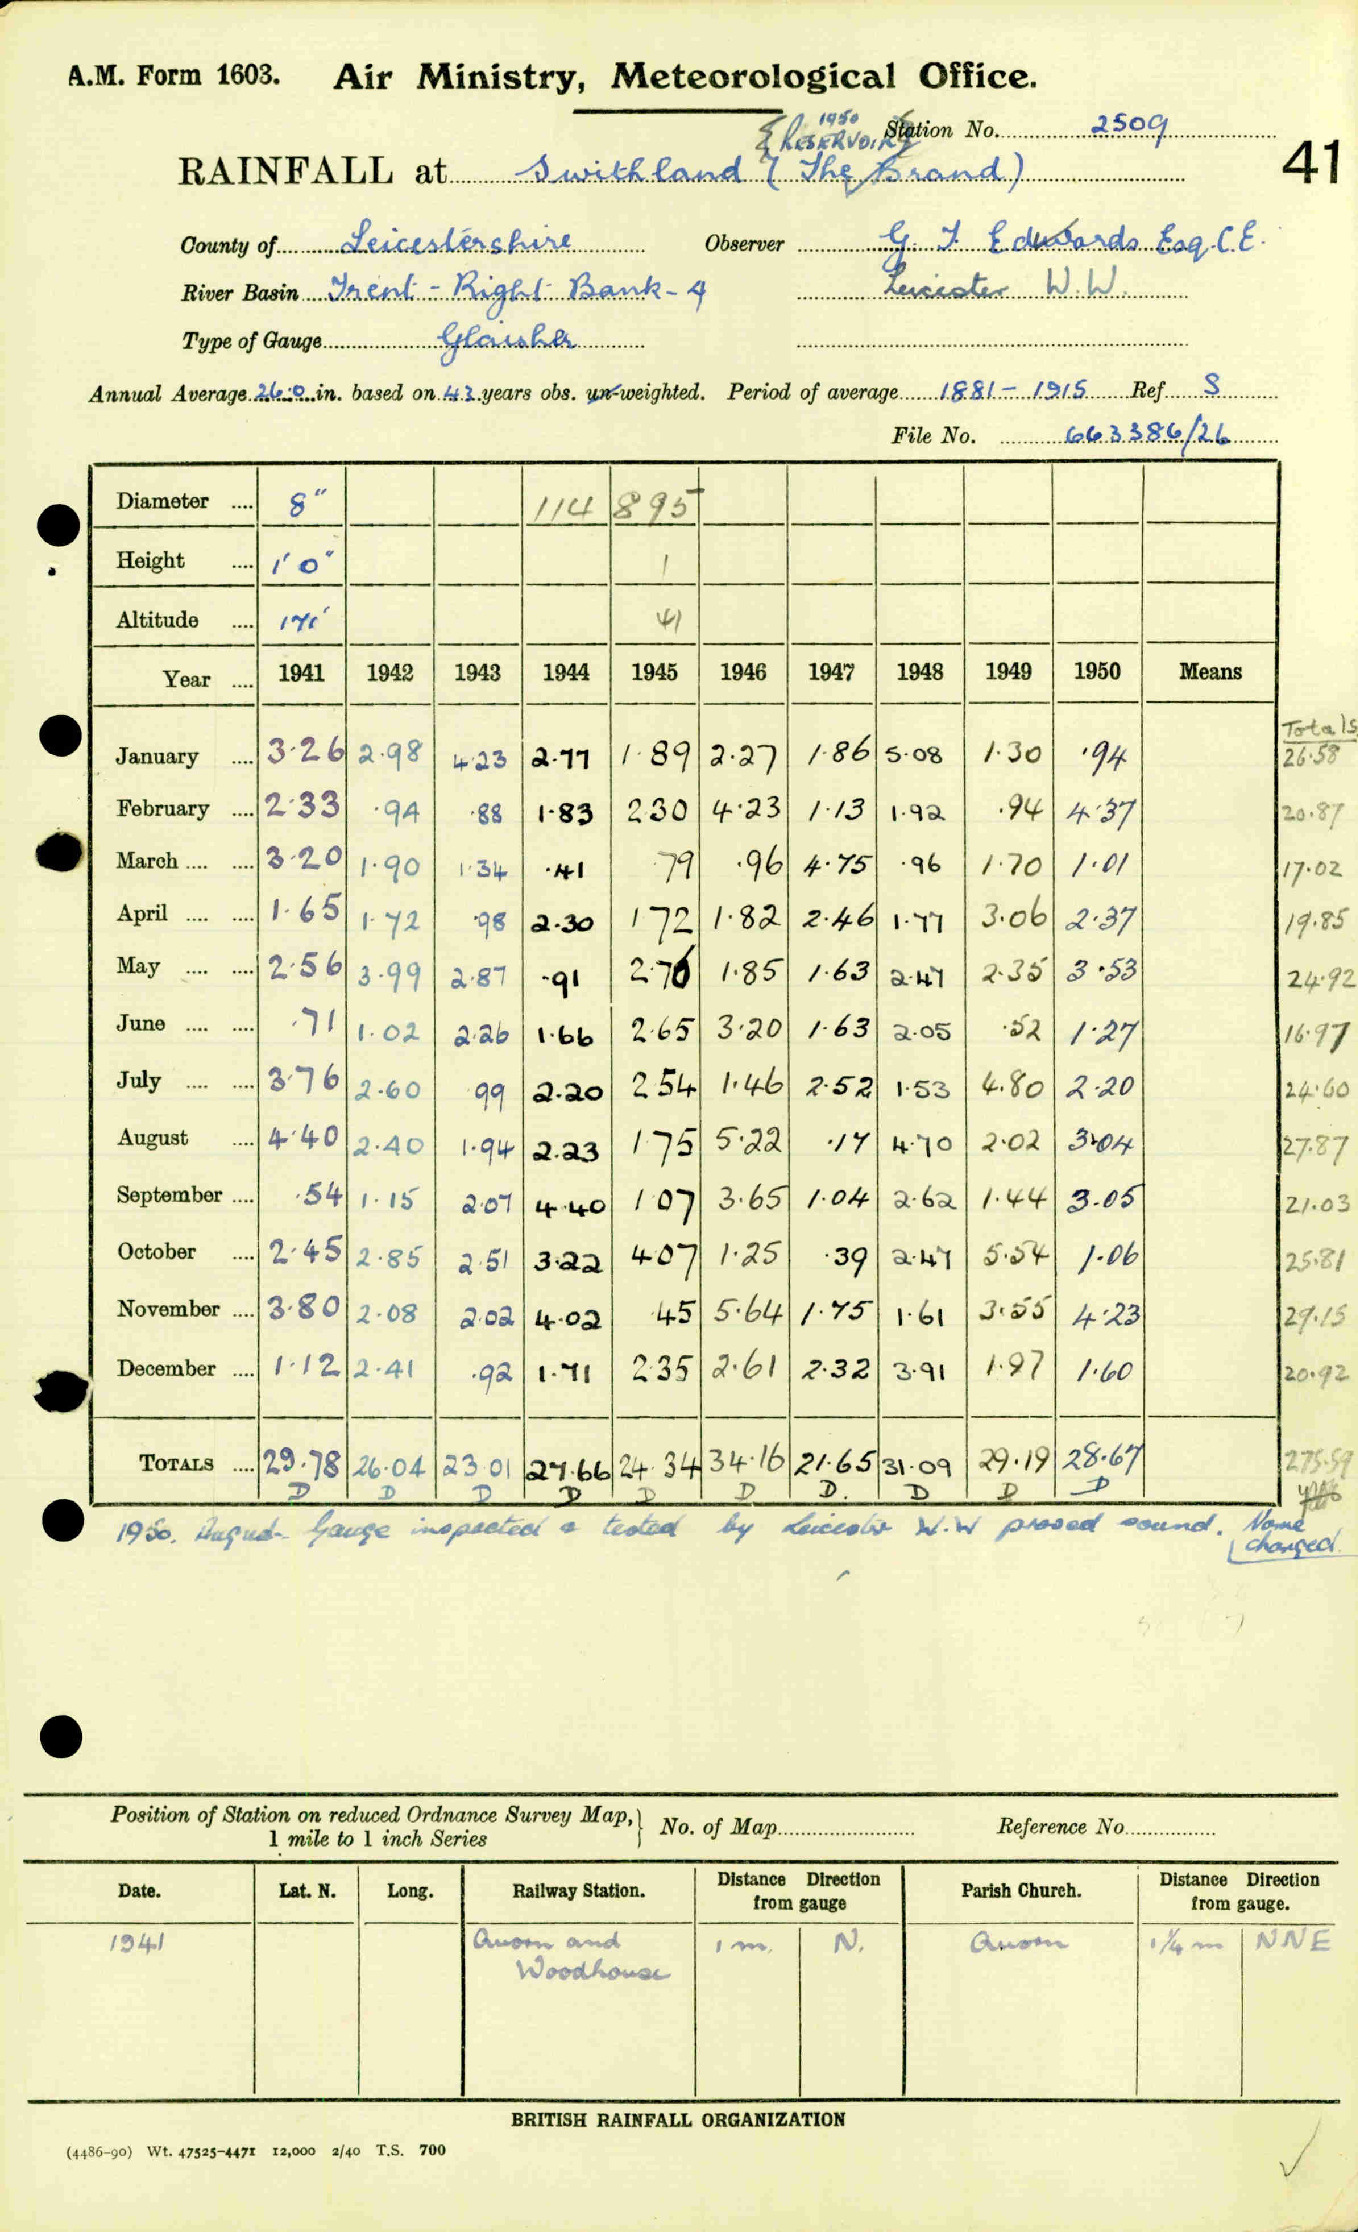 A.M. Form 1603. Air Ministry, Meteorological Office.
1950
RESERVOIR
Station No. 2509
41
RAINFALL at Swithland (The Brand)
County of Leicestershire Observer G. F. Edwards Esq. C.E.
River Basin Trent - Right Bank - 4 Leicester W.W.
Type of Gauge Glaisher
Annual Average 26.0 in. based on 43 years obs. un-weighted. Period of average 1881 - 1915 Ref S
File No. 663386/26
Diameter .... 8" 114 895
Height .... 1' 0" 1
Altitude .... 171' 41
Year .... 1941 1942 1943 1944 1945 1946 1947 1948 1949 1950 Means
Totals
January .... 3.26 2.98 4.23 2.77 1.89 2.27 1.86 5.08 1.30 .94 26.58
February .... 2.33 .94 .88 1.83 2.30 4.23 1.13 1.92 .94 4.37 20.87
March .... .... 3.20 1.90 1.34 .41 .79 .96 4.75 .96 1.70 1.01 17.02
April .... .... 1.65 1.72 .98 2.30 1 72 1.82 2.46 1.77 3.06 2.37 19.85
May .... .... 2.56 3.99 2.87 .91 2.76 1.85 1.63 2.47 2.35 3.53 24.92
June .... .... .71 1.02 2.26 1.66 2.65 3.20 1.63 2.05 .52 1.27 16.97
July .... .... 3.76 2.60 .99 2.20 2 54 1.46 2.52 1.53 4.80 2.20 24.60
August .... 4.40 2.40 1.94 2.23 1.75 5.22 .17 4.70 2.02 3.04 27.87
September .... .54 1.15 2.07 4.40 1 07 3.65 1.04 2.62 1.44 3.05 21.03
October .... 2.45 2.85 2.51 3.22 4 07 1.25 .39 2.47 5.54 1.06 25.81
November .... 3.80 2.08 2.02 4.02 .45 5.64 1.75 1.61 3.55 4.23 29.15
December .... 1.12 2.41 .92 1.71 2 35 2.61 2.32 3.91 1.97 1.60 20.92
TOTALS .... 29.78 26.04 23.01 27.66 24.34 34.16 21.65 31.09 29.19 28.67 275.59
D D D D D D D. D D D
1950. August Gauge inspected & tested by Leicester W.W proved sound. Name
changed.
Position of Station on reduced Ordnance Survey Map, } No. of Map Reference No.
1 mile to 1 inch Series
Date. Lat. N. Long. Railway Station. Distance Direction from gauge Parish Church. Distance Direction from gauge.
1941 Quorn and 1 m. N. Quorn 1¼ m NNE
Woodhouse
BRITISH RAINFALL ORGANIZATION
(4486-90) Wt. 47525-4471 12,000 2/40 T.S. 700